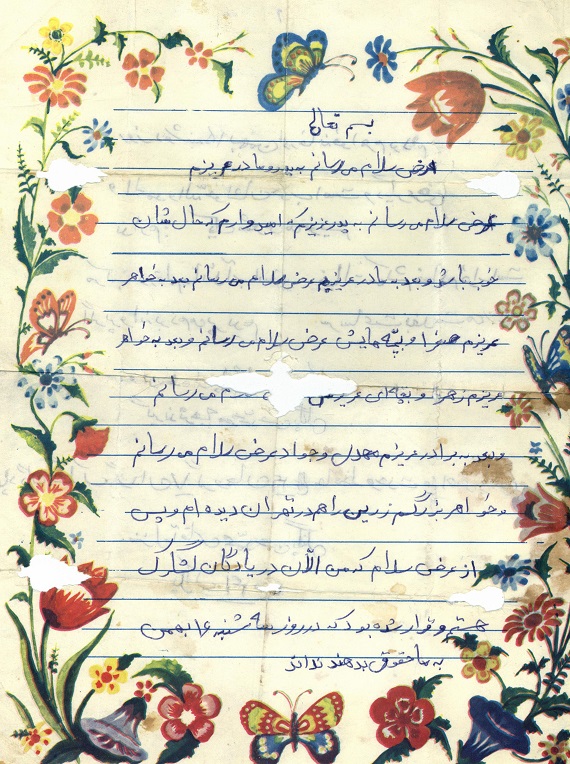 بسم تعالی
عرض سلام می رسانم به پدر و مادر عزیزم
عرض سلام می رسانم به پدر عزیزم که امیدوارم که حال شان
خوب باشد و بعد به مادر عزیزم عرض سلام می رسانم بعد به خواهر
عزیزم صغرا و بچه هایش عرض سلام می رسانم و بعد به خواهر
عزیزم زهرا و بچه های عزیزش سلام می رسانم
و بعد به برادر عزیزم مهدی و جواد عرض سلام می رسانم
و خواهر بزرگم زرین را هم در تهران دیده ام و پس
از عرض سلام که من الآن در پادگان لشگرک
هستم و قرار شده بود که در روز سه شنبه ۱۶ بهمن
به ما حقوق بدهند ندادند